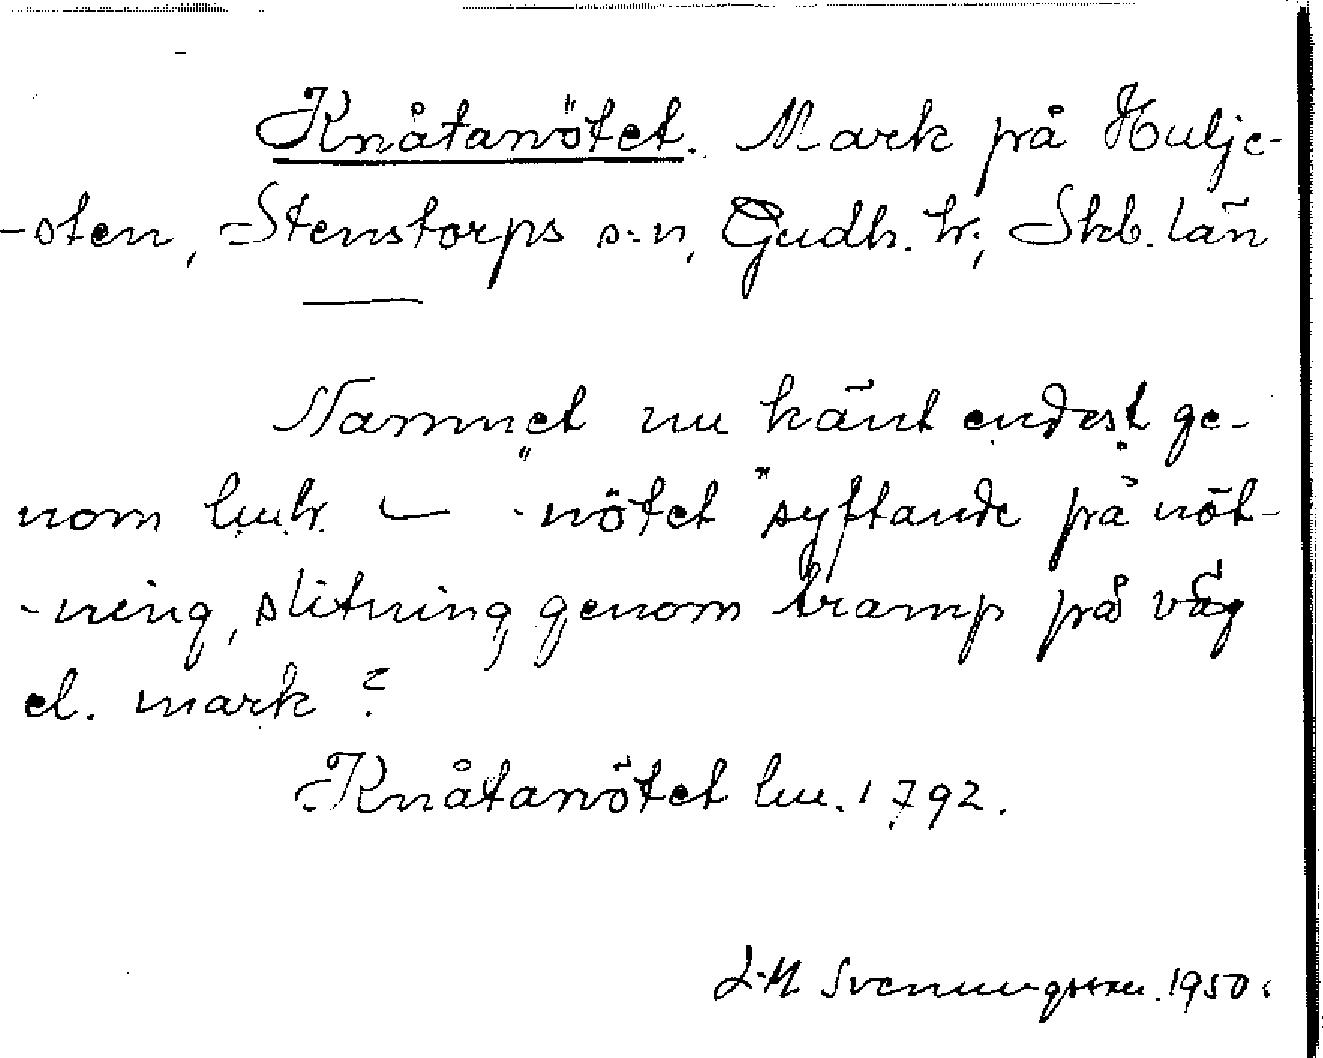 Knåtanötet. Mark på Hulje-
-sten, Stenstorps s:n, Gudh. hr., Skb. län
Namnet nu känt endast ge-
nom lmhr. — "-nötet" syftande på nöt-
-ning, slitning genom tramp på väg
el. mark?
Knåtanötet lm. 1792.
J.M. Svenningsson. 1950.